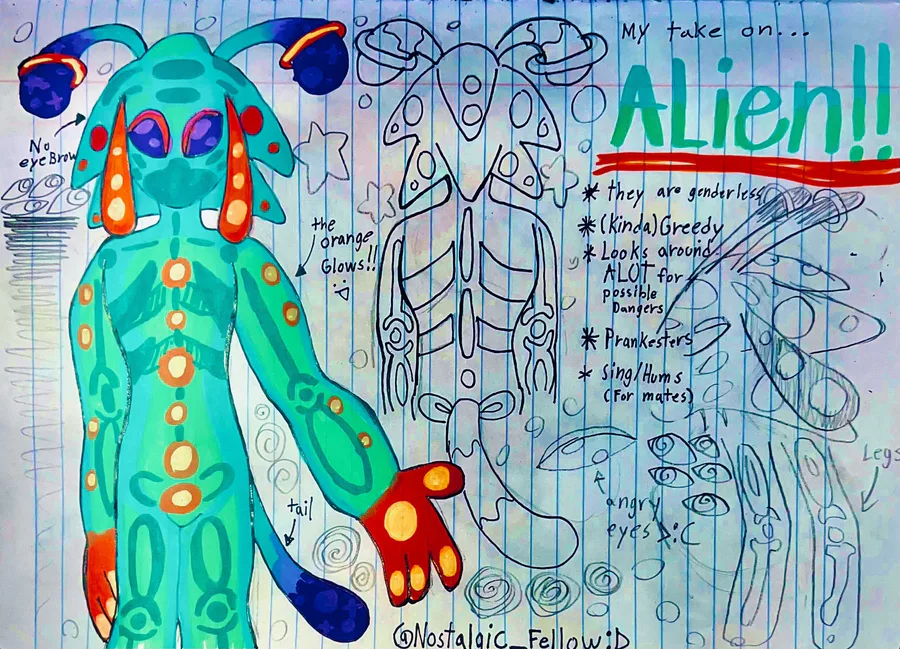 My take on...
ALien!!
No
eye Brow
* they are genderless
* (kinda) Greedy
* Looks around
ALOT for
possible
Dangers
* Prankesters
* sing/Hums
(For mates)
the
orange
Glows!!
:D
tail
angry
eyes >:C
Legs
@Nostalgic_Fellow;D